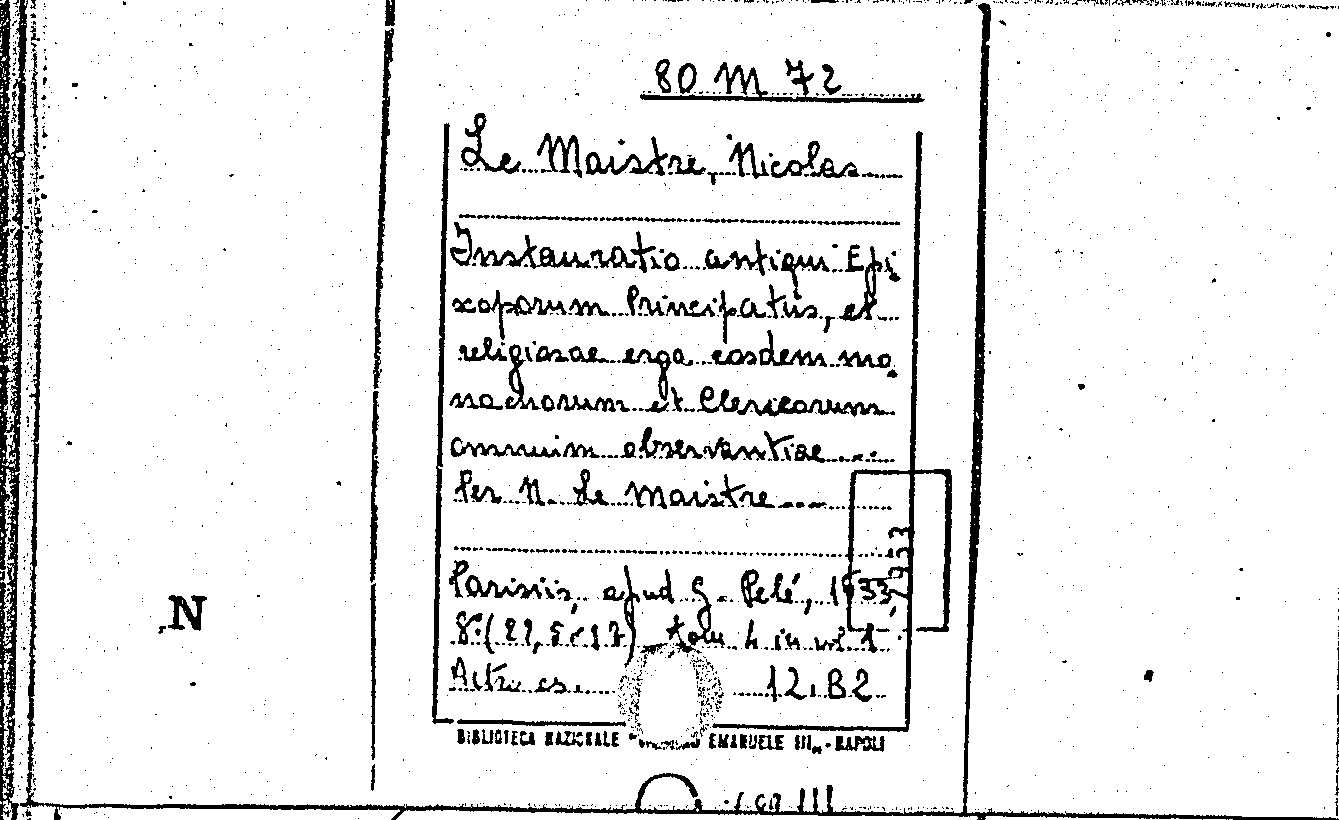 80 M 72
Le Maistre, Nicolas
Instauratio antiqui Epi
scoporum Principatus, et
religiosae erga eosdem mo
nachorum et Clericorum
omnium observantiae ...
Per N. Le Maistre ....
Parisiis, apud G. Pelé, 1633
8° (22,5 x 17) tom 4 in vol 1
N
Altro es. 12. B2
BIBLIOTECA NAZIONALE EMANUELE III„ - NAPOLI